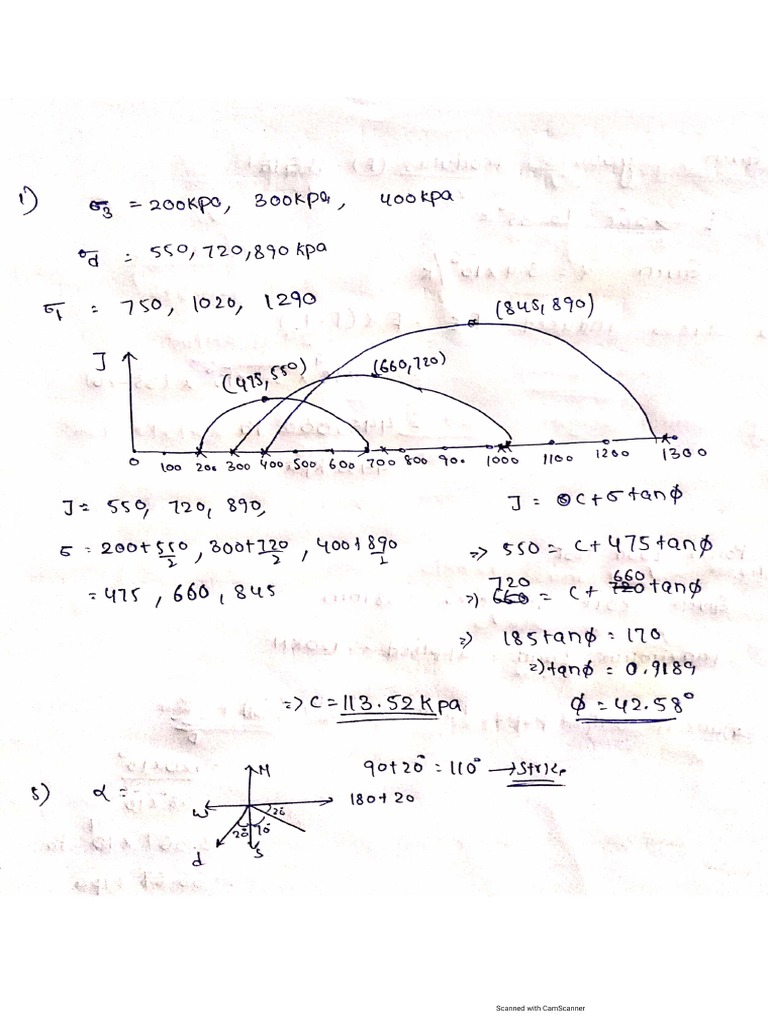 1) σ3 = 200kpa, 300kpa, 400kpa
σd = 550, 720, 890 kpa
σ1 = 750, 1020, 1290
(845, 890)
J
(475, 550)
(660, 720)
0 100 200 300 400 500 600 700 800 900 1000 1100 1200 1300
J = 550, 720, 890,
J = C + σ tanφ
σ = 200+550/2, 300+720/2, 400+890/2
=> 550 = C + 475 tanφ
= 475, 660, 845
=> 720 = C + 660 tanφ
=> 185 tanφ = 170
=> tanφ = 0.9189
=> C = 113.52 Kpa
φ = 42.58°
5) α =
N
90+20° = 110° → Strike
W
20°
180+20
20° 70°
d
S